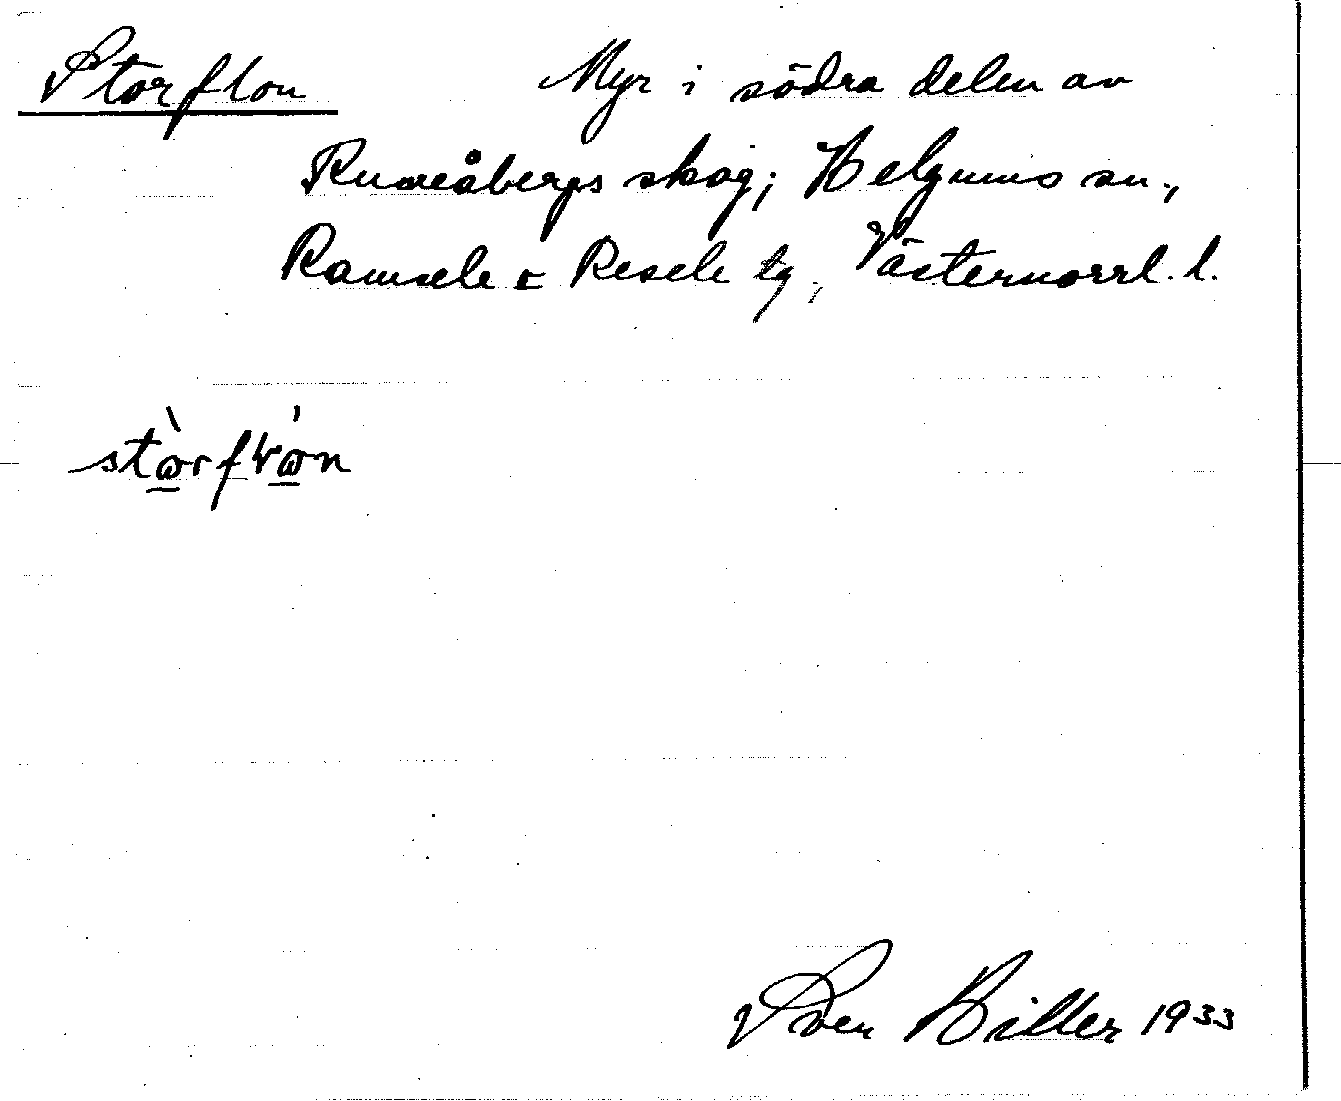 Storflon Myr i södra delen av
Ruskåbergs skog; Helgums sn.,
Ramsele o Resele tg, Västernorrl. l.
Sven Hiller 1933